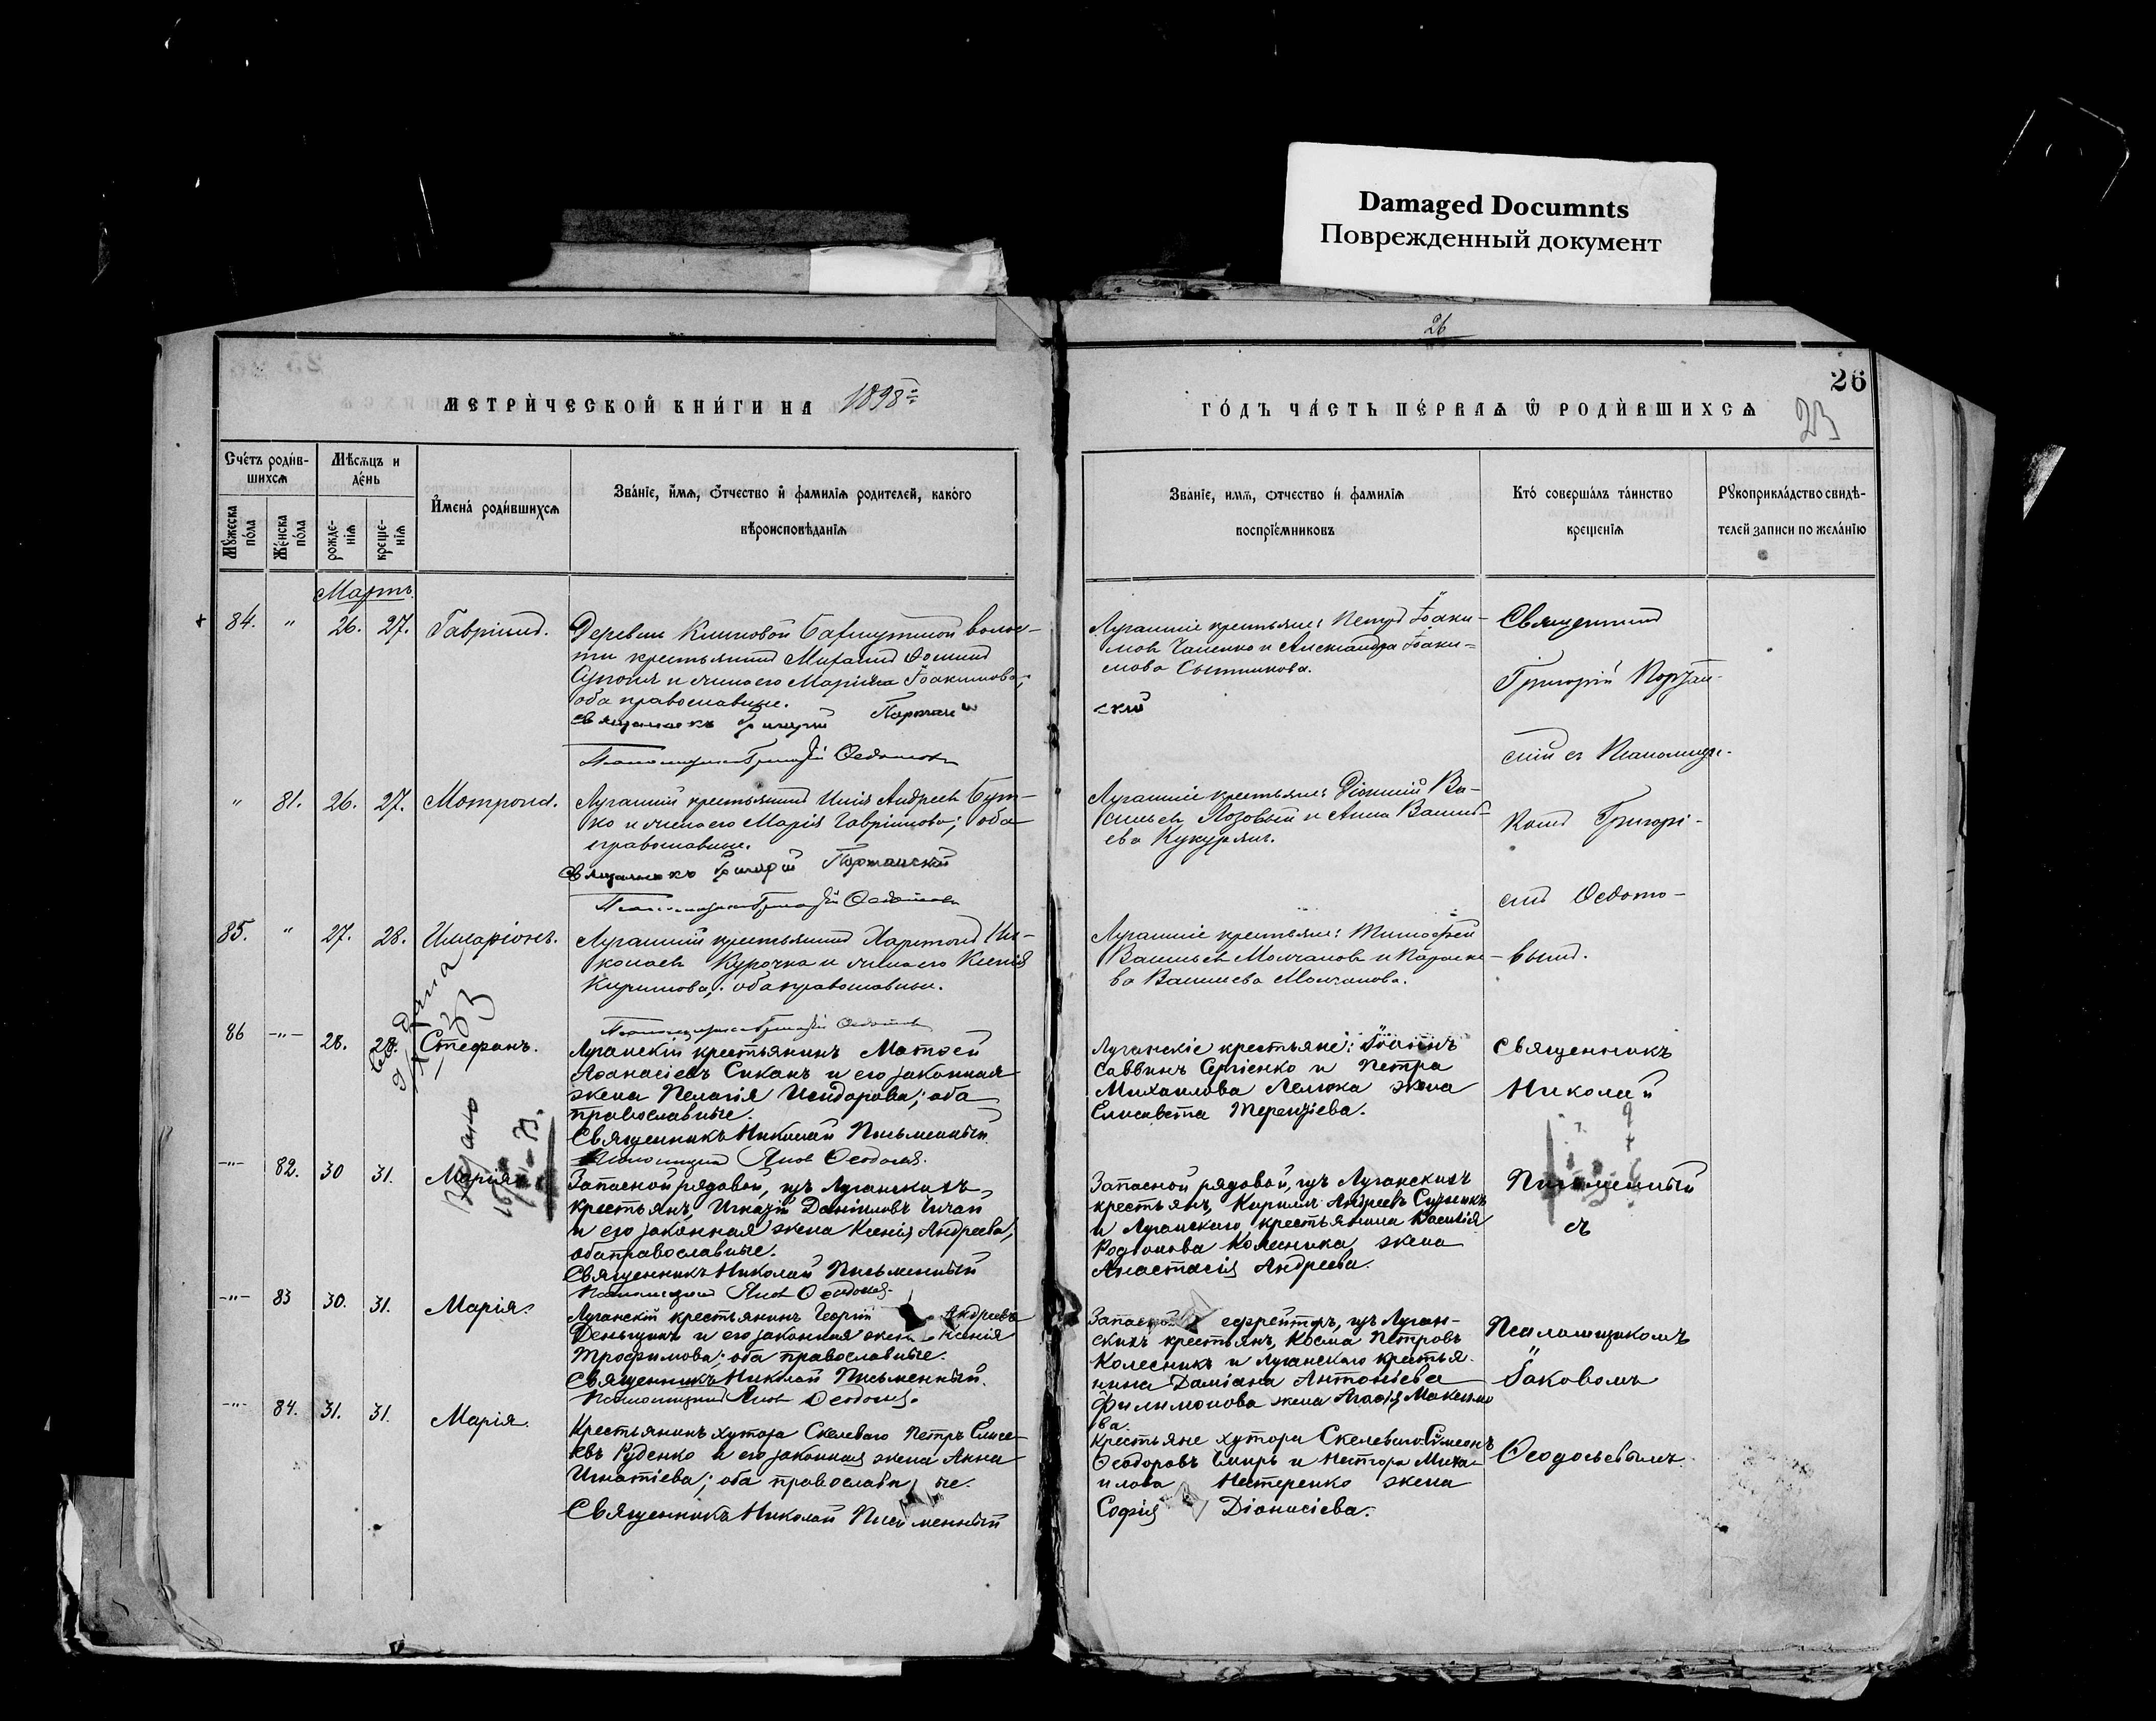 Damaged Documnts
Поврежденный документ
26
26
23
МЕТРИ́ЧЕСКОЙ КНИ́ГИ НА 1898
ГО́ДЪ ЧА́СТЬ ПЕ́РВАѦ Ѡ҆ РОДИ́ВШИХСѦ
Сче́тъ роди́в-
шихсѧ
Мꙋ́жеска по́ла
Же́нска по́ла
Мѣ́сѧцъ и де́нь
рожде-
нїѧ
креще-
нїѧ
И҆мена̀ роди́вшихсѧ
Зва́нїе, и҆́мѧ, ѻ҆́тчество и҆ фамилїѧ родителей, како́го
вѣроисповѣданїѧ
Званїе, имѧ, ѻтчество и҆ фамилїѧ
воспрїе́мниковъ
Кто̀ соверша́лъ та́инство
крещенїѧ
Рꙋкоприкла́дство свидѣ-
телей записи по жела́нїю
Мартъ
84. " 26. 27. Гавріилъ.
крестьянинъ Михаилъ
и жена его Марія Іоакимова;
оба православные.
Луганскіе крестьяне: Петръ Іоаки-
мовъ и Александра Іоаки-
мова Сытникова.
скій
Священникъ
Григорій
сій съ Псаломщи-
" 81. 26. 27. Мотрона.
Луганскій крестьянинъ Илія Андреевъ Бут-
ко и жена его Марія Гавріилова; оба
православные.
Луганскіе крестьяне: Діонисій Ва-
сильевъ Лозовый и Анна Василь-
ева
комъ Григорі-
емъ Ѳедото-
85. " 27. 28. Илларіонъ.
Луганскій крестьянинъ Харитонъ Ни-
колаевъ Курочка и жена его Ксенія
Кириллова; оба православные.
Луганскіе крестьяне: Тимоѳей
Васильевъ Молчановъ и Параске-
ва Васильева Молчанова.
вымъ.
86 -"- 28. 28. Стефанъ.
Луганскій крестьянинъ Матѳей
Аѳанасіевъ Сиканъ и его законная
жена Пелагія Исидорова; оба
православные.
Священникъ Николай Письменный
Псаломщикъ Яковъ Ѳеодосьевъ.
Луганскіе крестьяне: Іоаннъ
Саввинъ Сергіенко и Петра
Михаилова Лелюка жена
Елисавета Терентіева.
Священникъ
Николай
-"- 82. 30 31. Марія.
Запасной рядовой, изъ Луганскихъ
крестьянъ, Игнатій Даніиловъ
и его законная жена Ксенія Андреева;
оба православные.
Священникъ Николай Письменный
Псаломщикъ Яковъ Ѳеодосьевъ.
Запасной рядовой, изъ Луганскихъ
крестьянъ, Кириллъ Андреевъ
и Луганскаго крестьянина Василія
Родіонова Колесника жена
Анастасія Андреева.
Письменный
съ
-"- 83 30. 31. Марія.
Луганскій крестьянинъ Георгій Андреевъ
Деньщикъ и его законная жена Ксенія
Трофимова; оба православные.
Священникъ Николай Письменный.
Псаломщикъ Яковъ Ѳеодосьевъ.
Запасной ефрейторъ, изъ Луган-
скихъ крестьянъ, Косма Петровъ
Колесникъ и Луганскаго крестья-
нина Даміана Антоніева
Филимонова жена Агаѳія Максимо
ва.
Псаломщикомъ
Іаковомъ
-"- 84. 31. 31. Марія.
Крестьянинъ хутора Скелеваго Петръ Елисе-
евъ Руденко и его законная жена Анна
Игнатіева; оба православные.
Священникъ Николай Письменный
Крестьяне хутора Скелеваго: Симеонъ
Ѳеодоровъ и Нестора Миха-
илова Нестеренко жена
Софія Діонисіева.
Ѳеодосьевымъ.